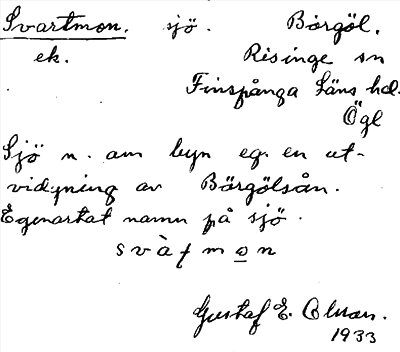 Svartmon. sjö. Börgöl.
ek. Risinge sn
Finspånga Läns hd.
Ögl
Sjö n. om byn eg. en ut-
vidgning av Börgölsån.
Egenartat namn på sjö.
svàṭmo̲n
Gustaf E. Olsson.
1933